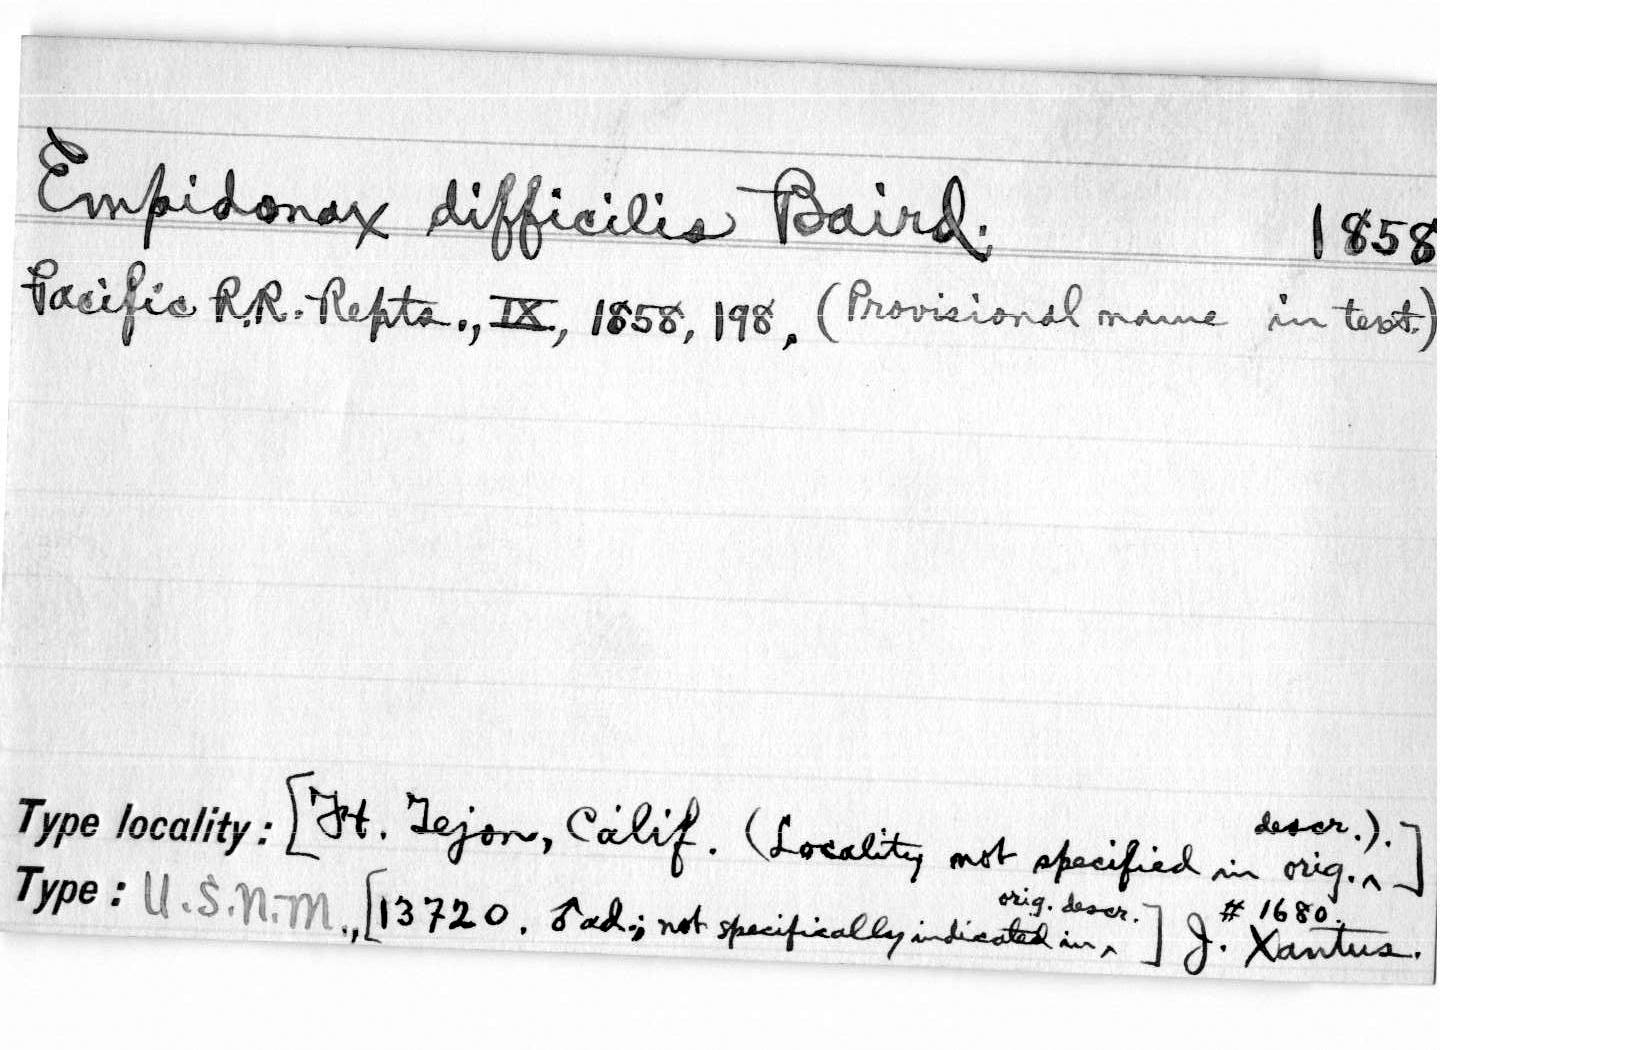 Empidonax difficilis Baird. 1858
Pacific R.R. Repts., IX, 1858, 198, (Provisional name in text.)
Type locality: [Ft. Tejon, Calif. (Locality not specified in orig. ^ descr.).]
Type: U.S.N.M., [13720. ♂ ad.; not specifically indicated in ^ orig. descr.] J. Xantus. # 1680.